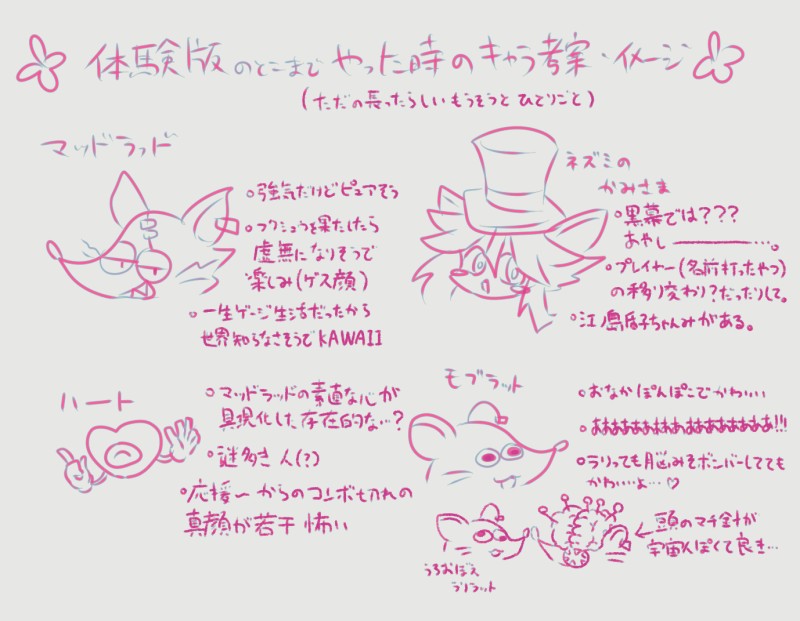 体験版のとこまでやった時のキャラ考察・イメージ
(ただの長ったらしいもうそうとひとりごと)
マッドラット
強気だけどピュアそう
フクシュウを果たしたら
虚無になりそうで
楽しみ(ゲス顔)
一生ゲージ生活だったから
世界知らなさそうでKAWAII
ネズミの
かみさま
黒幕では???
あやし―――…。
プレイヤー(名前打ったやつ)
の移り変わり?だったりして。
江ノ島盾子ちゃんみがある。
ハート
マッドラッドの素直な心が
具現化した存在的な…?
謎多き人(?)
応援〜からのコンボ切れの
真顔が若干怖い
モブラット
おなかぽんぽこでかわいい
ラリっても脳みそボンバーしてても
かわいいよ…♡
頭のマチ針が
宇宙人ぽくて良き…
うろおぼえ
ラリラット